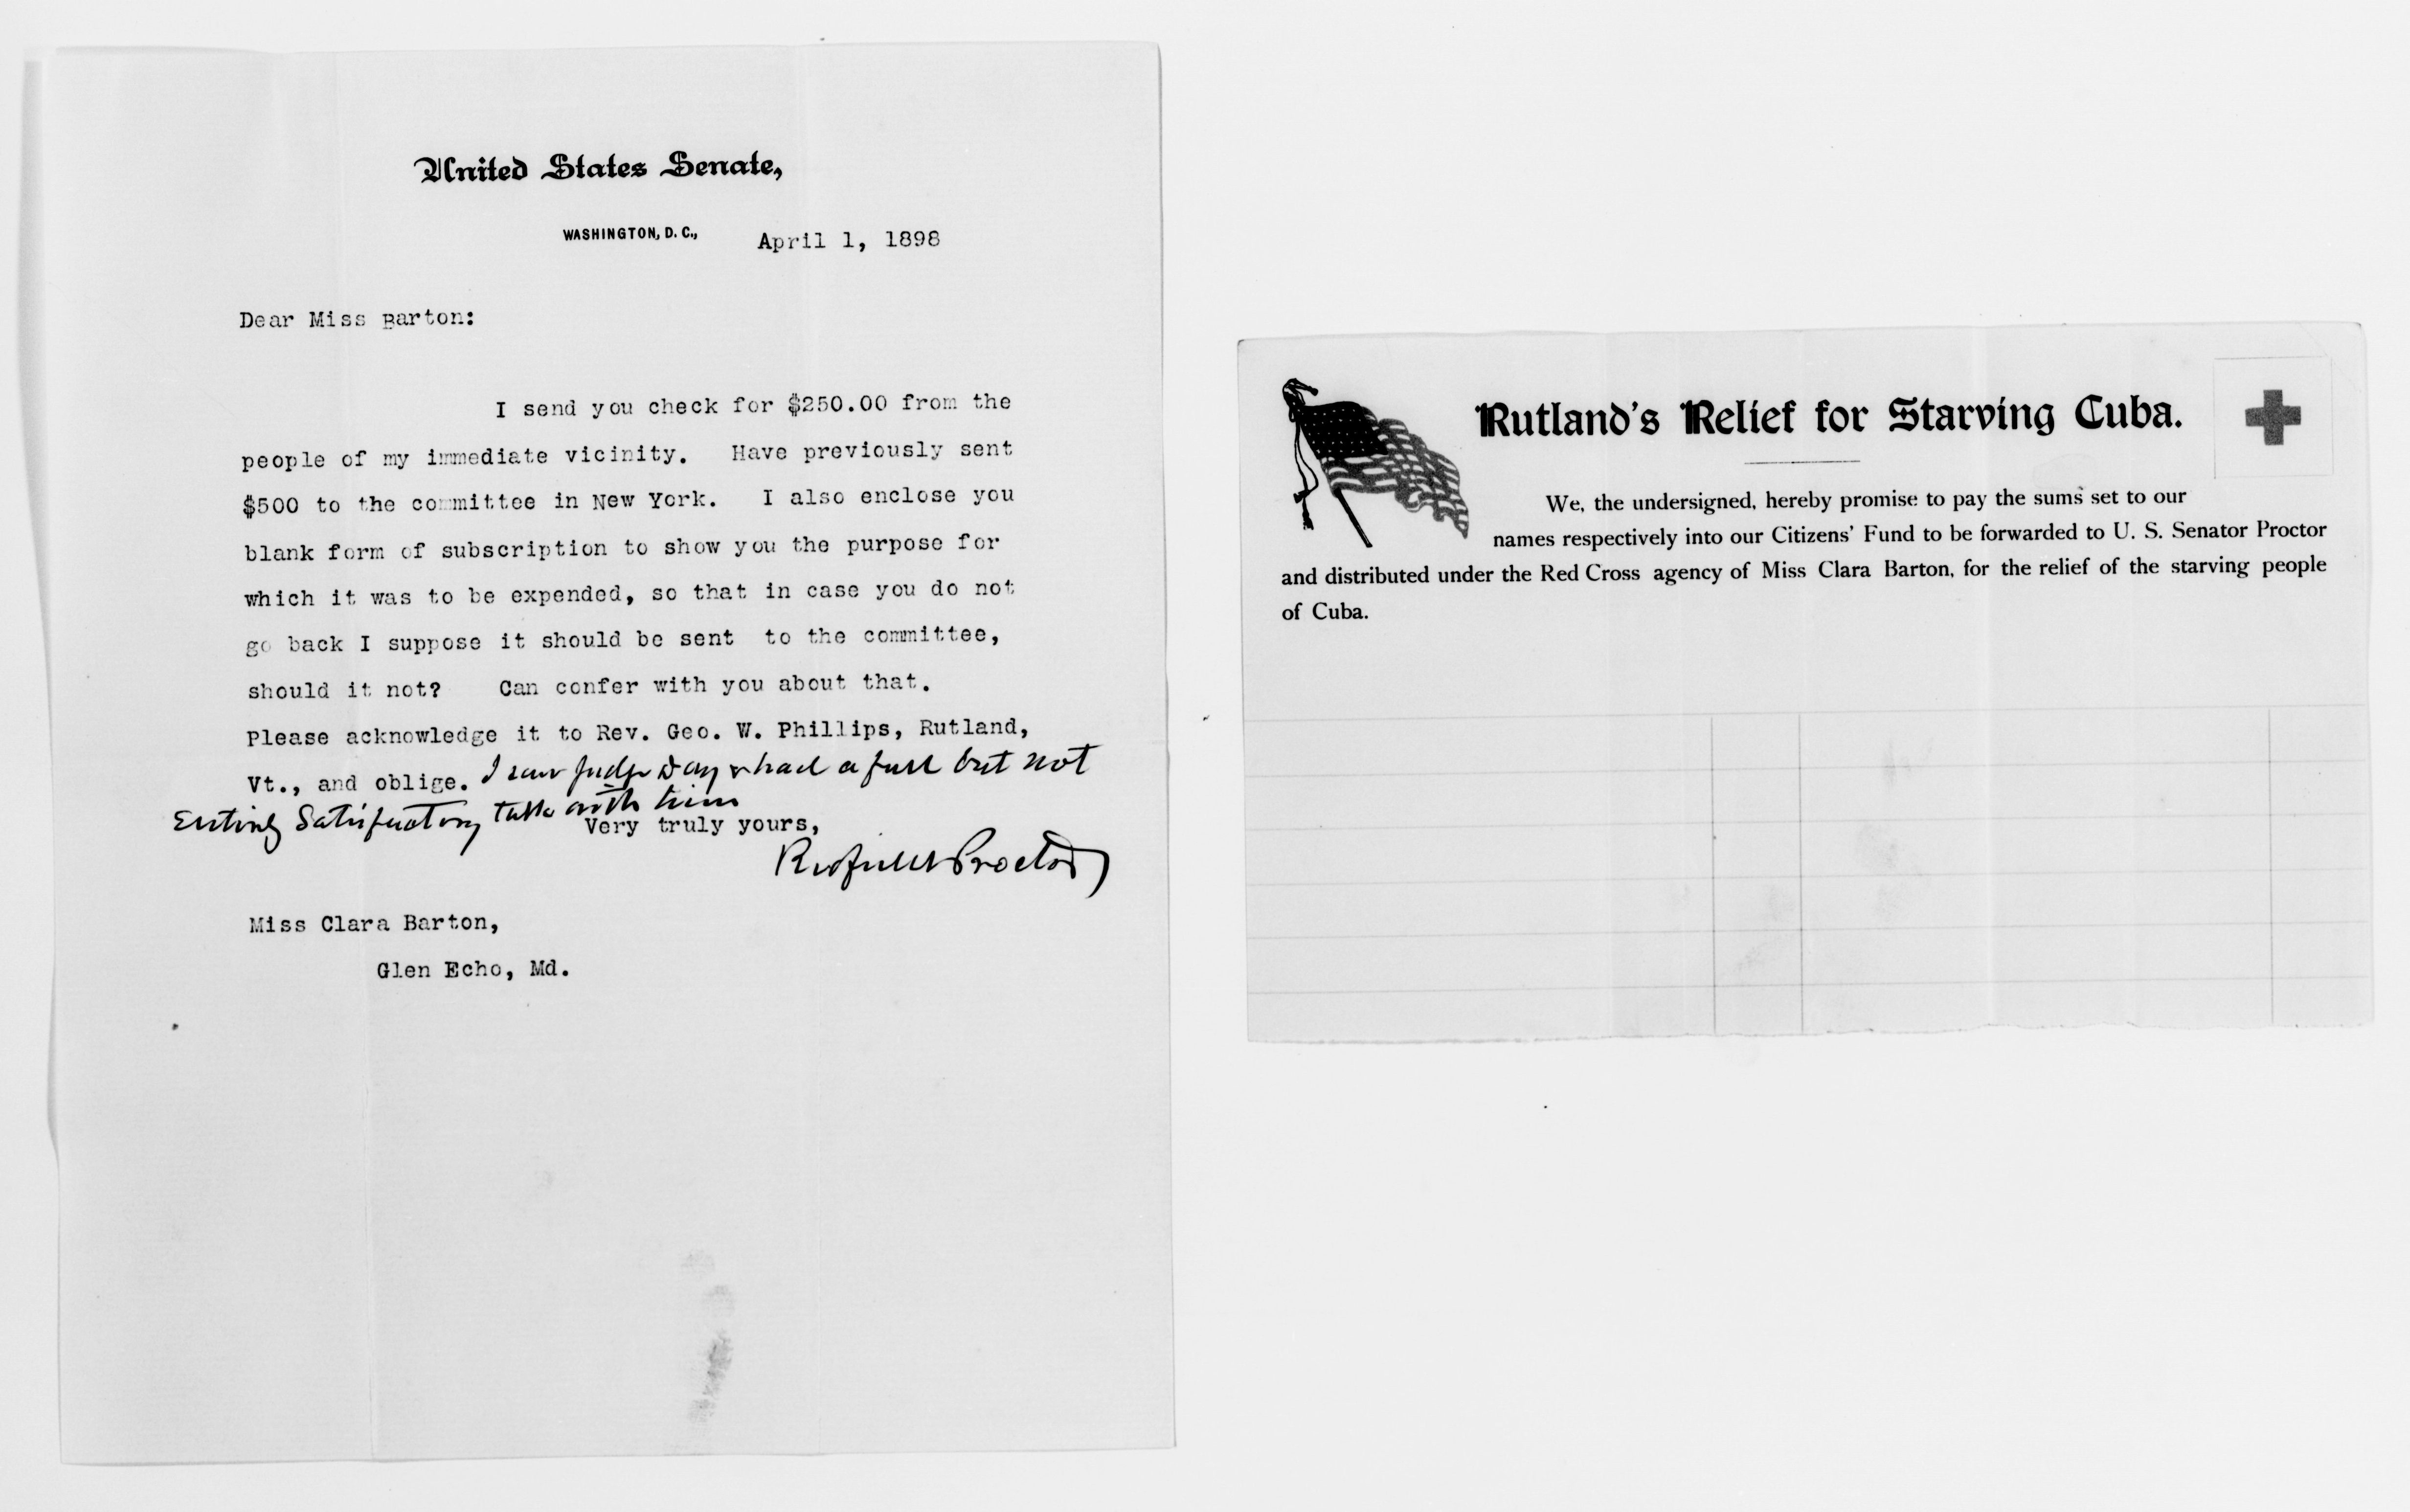 United States Senate,
WASHINGTON, D. C., April 1, 1898
Dear Miss Barton:
I send you check for $250.00 from the
people of my immediate vicinity. Have previously sent
$500 to the committee in New York. I also enclose you
blank form of subscription to show you the purpose for
which it was to be expended, so that in case you do not
go back I suppose it should be sent to the committee,
should it not? Can confer with you about that.
Please acknowledge it to Rev. Geo. W. Phillips, Rutland,
Vt., and oblige. I saw Judge Day & had a full but not
entirely satisfactory talk with him
Very truly yours,
Redfield Proctor
Miss Clara Barton,
Glen Echo, Md.
Rutland's Relief for Starving Cuba.
We, the undersigned, hereby promise to pay the sums set to our
names respectively into our Citizens' Fund to be forwarded to U. S. Senator Proctor
and distributed under the Red Cross agency of Miss Clara Barton, for the relief of the starving people
of Cuba.